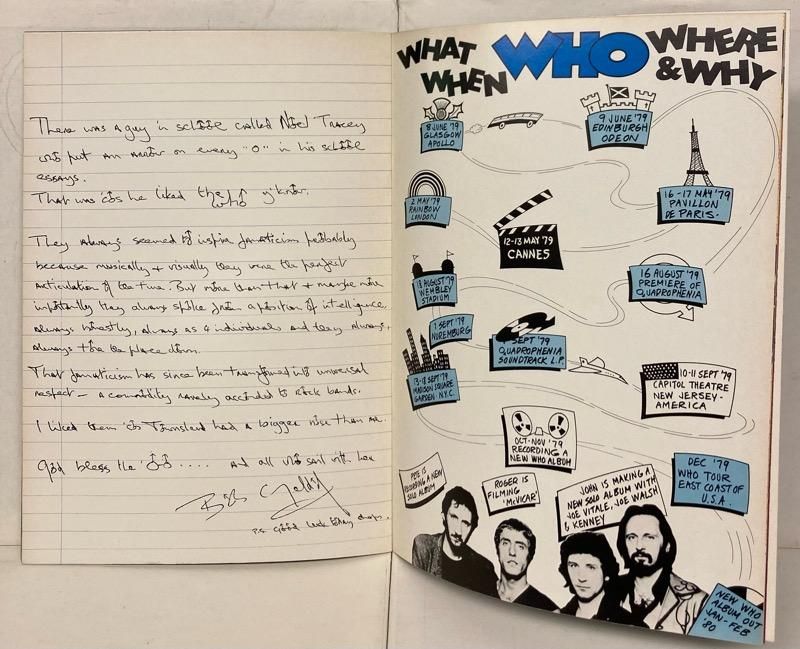 There was a guy in school called Noel Tracey
who put an arrow on every "o" in his school
essays.
That was 'cos he liked the Who y'know.
They always seemed to inspire fanaticism probably
because musically & visually they were the perfect
articulation of the time. But more than that & maybe more
importantly they always spoke from a position of intelligence,
always honestly, always as 4 individuals and they always,
always tore the place down.
That fanaticism has since been transformed into universal
respect - a commodity rarely accorded to Rock bands.
I liked them 'cos Townshend had a bigger nose than me.
God bless the 'oo .... And all who sail with her
Bob Geldof
P.S. Good luck chaps.
WHAT WHO WHERE
WHEN & WHY
8 JUNE '79
GLASGOW
APOLLO
9 JUNE '79
EDINBURGH
ODEON
2 MAY '79
RAINBOW
LONDON
16-17 MAY '79
PAVILLON
DE PARIS.
12-13 MAY '79
CANNES
18 AUGUST '79
WEMBLEY
STADIUM
16 AUGUST '79
PREMIERE OF
QUADROPHENIA
1 SEPT '79
NUREMBURG
SEPT '79
QUADROPHENIA
SOUNDTRACK L.P.
13-18 SEPT '79
MADISON SQUARE
GARDEN · N.Y.C.
10-11 SEPT '79
CAPITOL THEATRE
NEW JERSEY -
AMERICA
OCT-NOV '79
RECORDING A
NEW WHO ALBUM
DEC '79
WHO TOUR
EAST COAST OF
U.S.A.
PETE IS
RECORDING A NEW
SOLO ALBUM
ROGER IS
FILMING
'McVICAR'
JOHN IS MAKING A
NEW SOLO ALBUM WITH
JOE VITALE, JOE WALSH
& KENNEY
NEW WHO
ALBUM OUT
JAN-FEB
'80